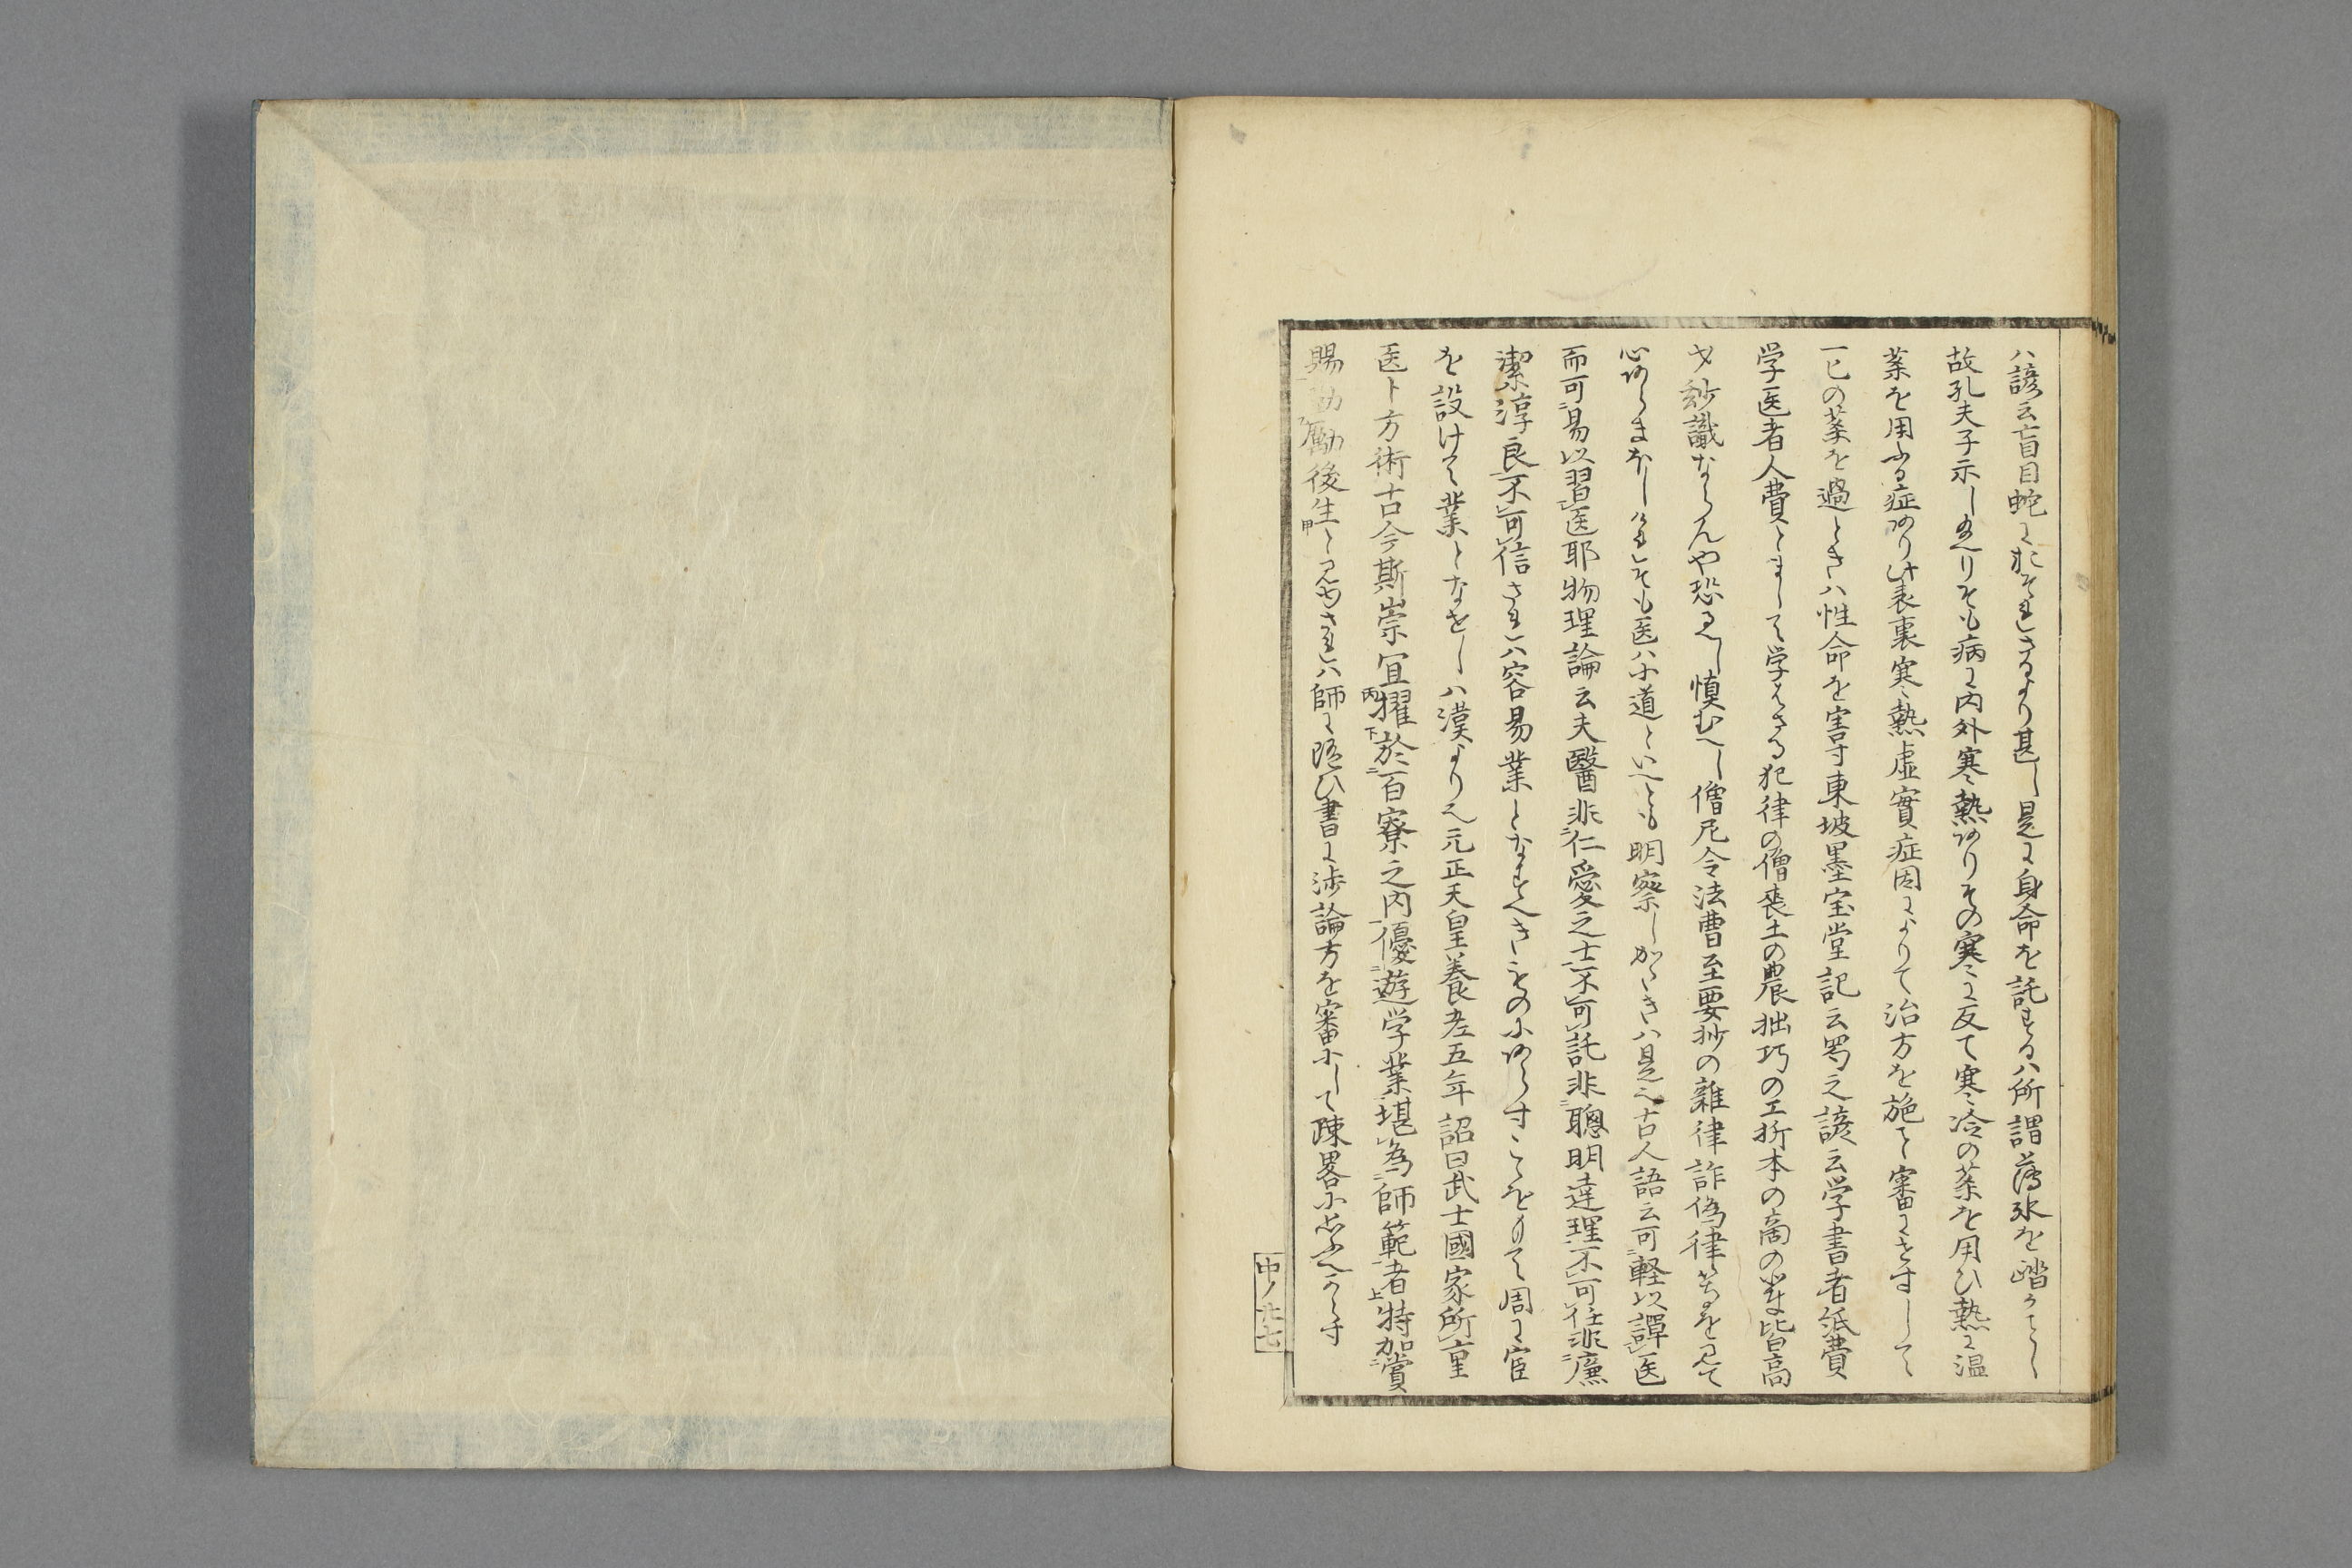 ハ諺云盲目蛇におそれさるより甚し是に身命を託するハ所謂薄氷を踏かことし
故孔夫子示し玉へりそも病に内外寒熱ありその寒に反て寒冷の薬を用ひ熱に温
薬を用ふる症あり此表裏寒熱虚實症因によりて治方を施て審にせすして
一匕の薬を過ときハ性命を害す東坡墨宝堂記云蜀之諺云学書者紙費
学医者人費とまして学はさる犯律の僧喪土の農拙巧の工折本の商の輩皆高
才妙識ならんや恐るへし慎むへし僧尼令法曹至要抄の雑律詐偽律等を見て
心あらまほしけれそも医ハ小道といへとも明察しかたきハ是也古人語云可軽以譚医
而可易以習医耶物理論云夫醫非仁愛之士不可託非聰明達理不可任非廉
潔淳良不可信されハ容易業となすへきものにあらすこゝをもて周に官
を設けて業となせしハ漢より也元正天皇養老五年詔曰武士國家所重
医卜方術古今斯崇宜擢於百寮之内優遊学業堪為師範者特加賞
賜勧励後生と見ゆされハ師に随ひ書に渉論方を審にして疎畧に思ふへからす
中ノ廿七